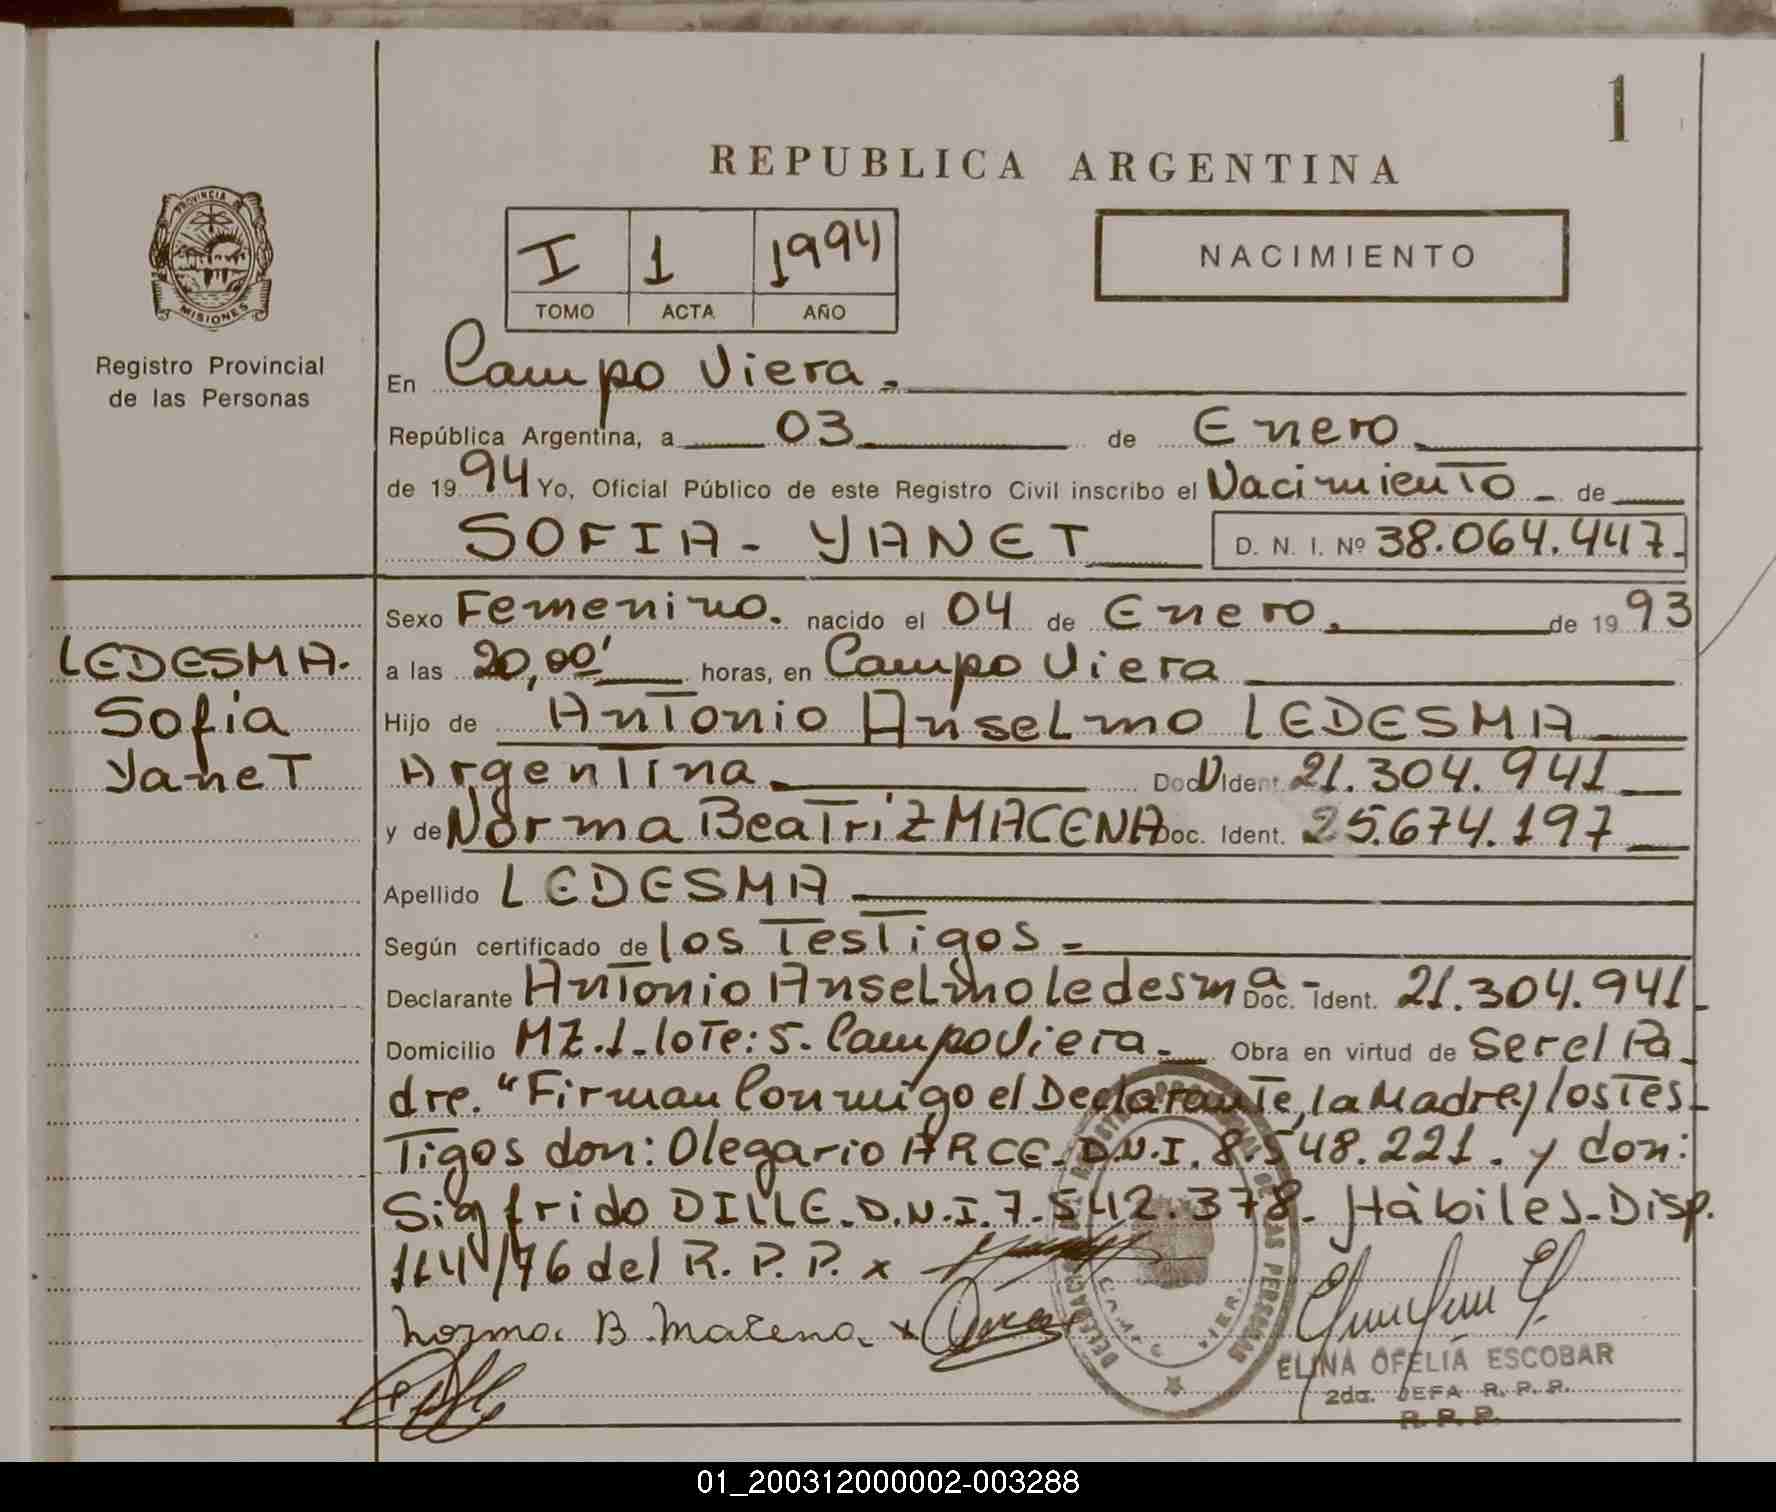 1
REPUBLICA ARGENTINA
PROVINCIA DE
MISIONES
Registro Provincial
de las Personas
I 1 1994
TOMO ACTA AÑO
NACIMIENTO
En Campo Viera.
República Argentina, a 03 de Enero
de 1994 Yo, Oficial Público de este Registro Civil inscribo el Nacimiento de
SOFIA - YANET D. N. I. Nº 38.064.447.
Sexo Femenino. nacido el 04 de Enero. de 1993
LEDESMA.
Sofia
YaneT
a las 20,00' horas, en Campo Viera
Hijo de Antonio Anselmo LEDESMA
Argentina. Doc. Ident. 21.304.941
y de Norma Beatriz MACENA Doc. Ident. 25.674.197
Apellido LEDESMA
Según certificado de los Testigos.
Declarante Antonio Anselmo Ledesma. Doc. Ident. 21.304.941.
Domicilio MZ.1-lote:5. Campo Viera. Obra en virtud de ser el Pa-
dre. "Firman Conmigo el Declarante, la Madre y los Tes-
Tigos don: Olegario ARCE. D.N.I. 8.548.221. y don:
Sigfrido DILLE. D.N.I. 7.542.378. Hàbiles. Disp.
114/76 del R. P. P. x
Norma B. Macena x
ELINA OFELIA ESCOBAR
2da. JEFA R. P. P.
R. P. P.
01_200312000002-003288